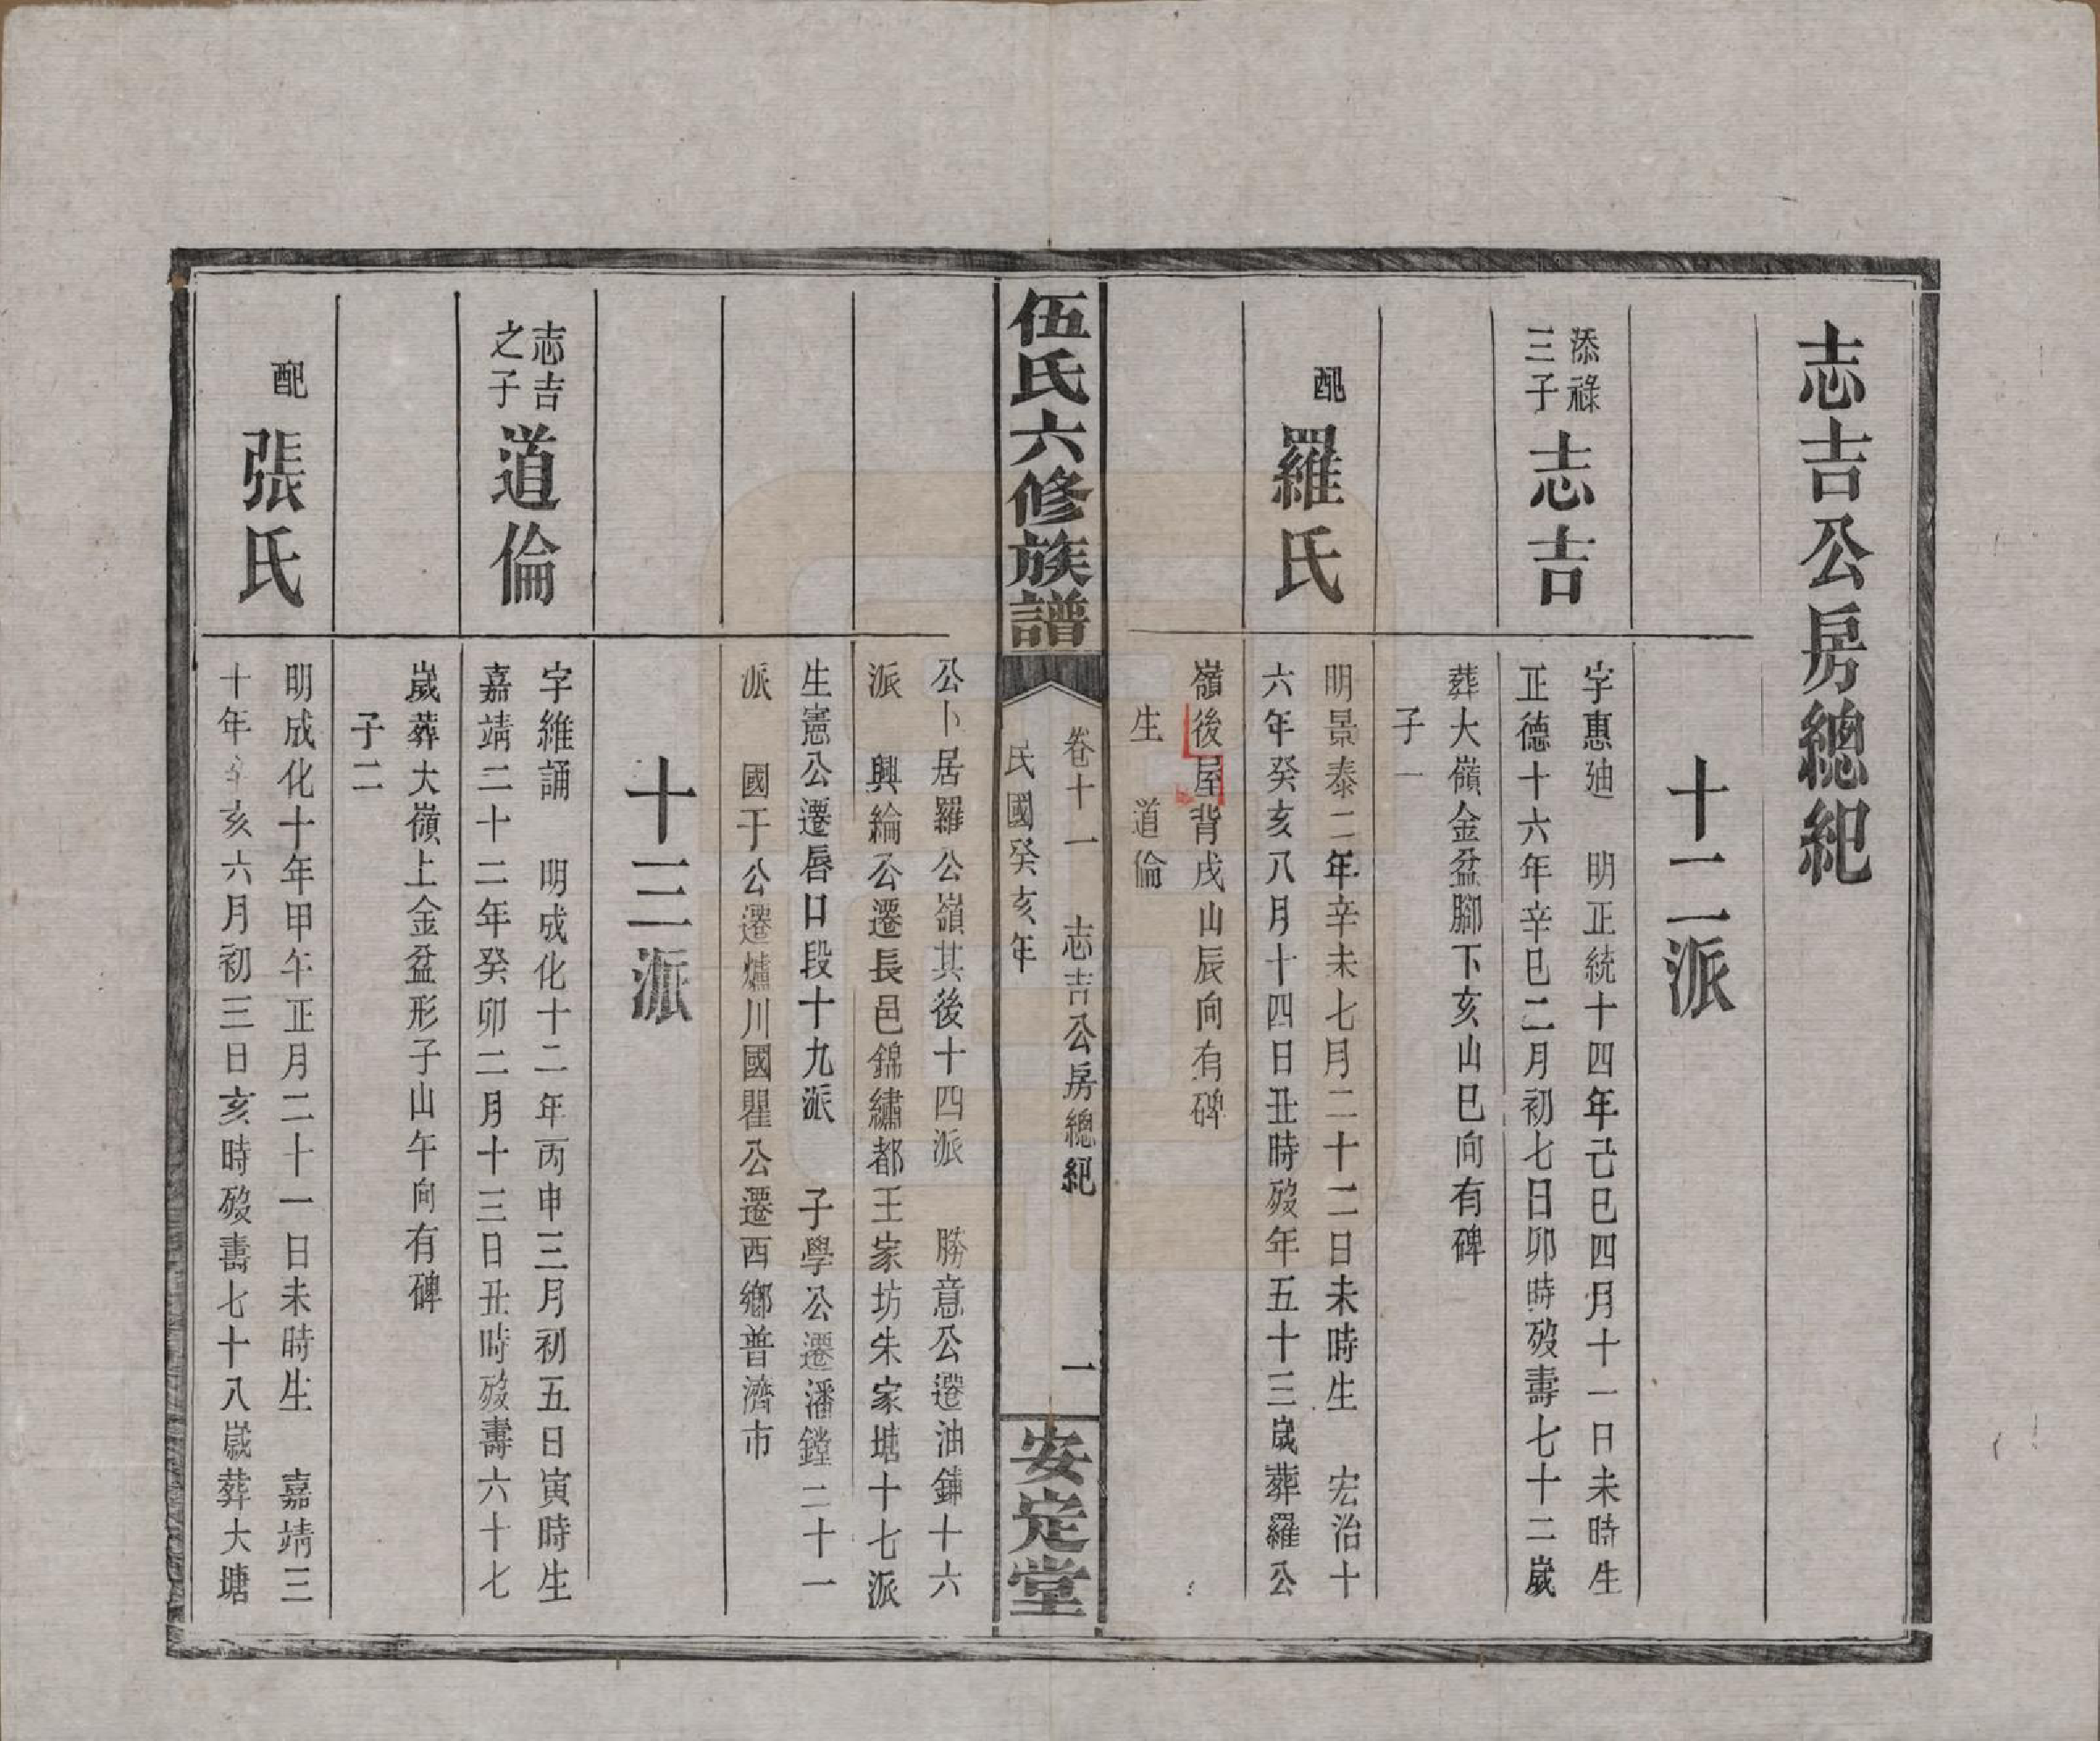 志吉公房總紀
十二派
添祿三子
志吉
字惠廸　明正統十四年己巳四月十一日未時生
正德十六年辛巳二月初七日卯時歿壽七十二歲
葬大嶺金盆腳下亥山巳向有碑
子一
配
羅氏
明景泰二年辛未七月二十二日未時生　宏治十
六年癸亥八月十四日丑時歿年五十三歲葬羅公
嶺後屋背戌山辰向有碑
生　道倫
伍氏六修族譜
卷十一　志吉公房總紀　一
民國癸亥年
安定堂
公卜居羅公嶺其後十四派　勝意公遷油鋪十六
派　興綸公遷長邑錦繡都王家坊朱家塘十七派
生憲公遷唇口段十九派　子學公遷潘鏜二十一
派　國于公遷爐川國瞿公遷西鄉普濟市
十三派
志吉之子
道倫
字維誦　明成化十二年丙申三月初五日寅時生
嘉靖二十二年癸卯二月十三日丑時歿壽六十七
歲葬大嶺上金盆形子山午向有碑
子二
配
張氏
明成化十年甲午正月二十一日未時生　嘉靖三
十年辛亥六月初三日亥時歿壽七十八歲葬大塘